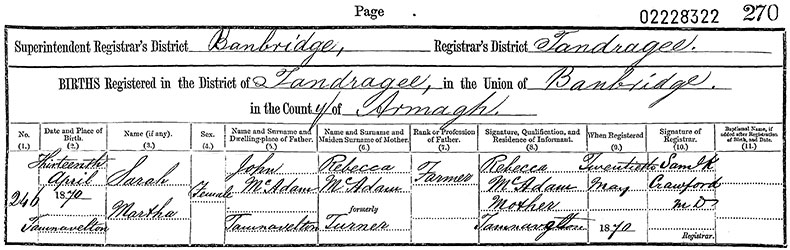 Page 02228322 270
Superintendent Registrar's District Banbridge, Registrar's District Tandragee.
BIRTHS Registered in the District of Tandragee, in the Union of Banbridge.
in the County of Armagh.
No. (1.) Date and Place of Birth. (2.) Name (if any). (3.) Sex. (4.) Name and Surname and Dwelling-place of Father. (5.) Name and Surname and Maiden Surname of Mother. (6.) Rank or Profession of Father. (7.) Signature, Qualification, and Residence of Informant. (8.) When Registered (9.) Signature of Registrar. (10.) Baptismal Name, if added after Registration of Birth, and Date. (11.)
Thirteenth John Rebecca Rebecca Twentieth Saml K
April Sarah McAdam McAdam Farmer McAdam May Crawford
246 1870 Female Mother M D
Martha formerly
Tamnavelton Tamnavelton Turner Tamnavelton 1870 Registrar.